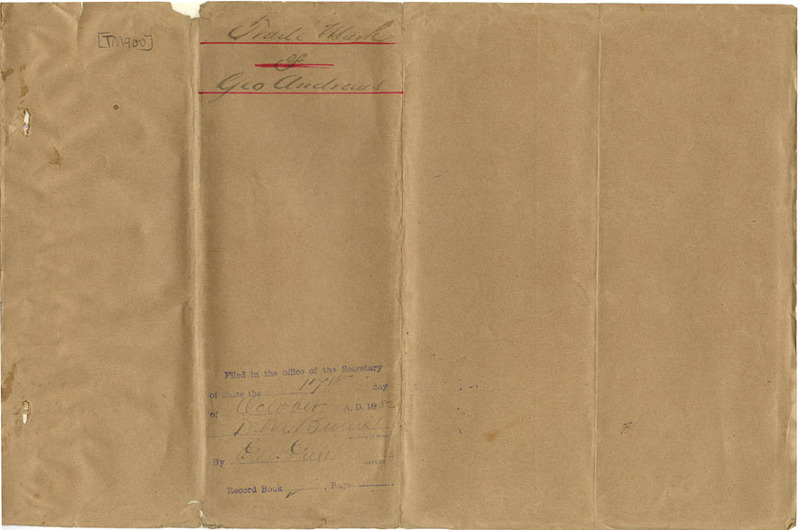 [TM900]
Trade Mark
of
Geo Andrews
Filed in the office of the Secretary
of State the 17th day
of October A. D. 18
By
Record Book , Page